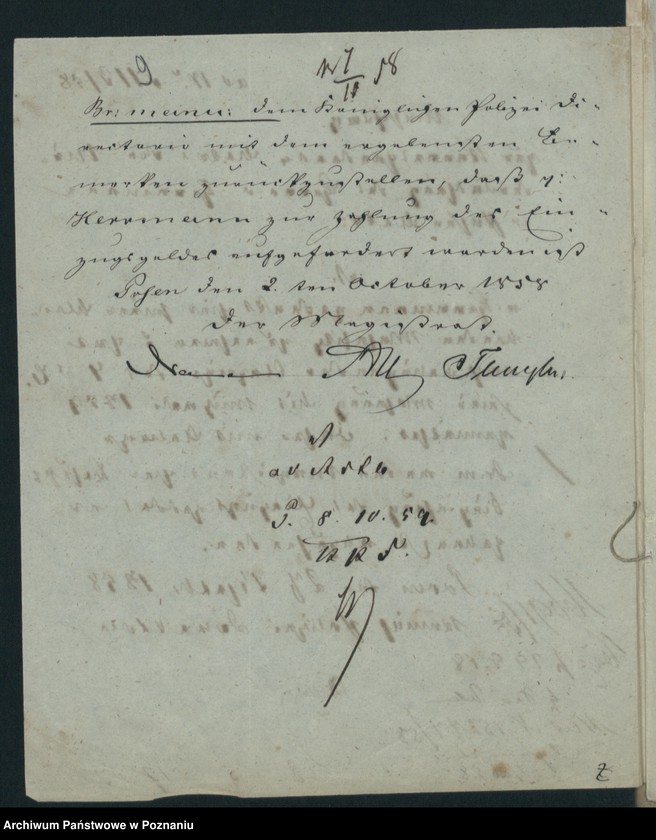 9
Br: manu: dem Königlichen Polizei Di-
rectorio mit dem ergebensten Be-
merken zurückzustellen, daß p:
Herrmann zur Zahlung des Ein-
zugsgeldes aufgefordert worden ist
Posen den 2. ten October 1858
Der Magistrat.
ad Acta
P. 8. 10. 58.
K P D.
Archiwum Państwowe w Poznaniu